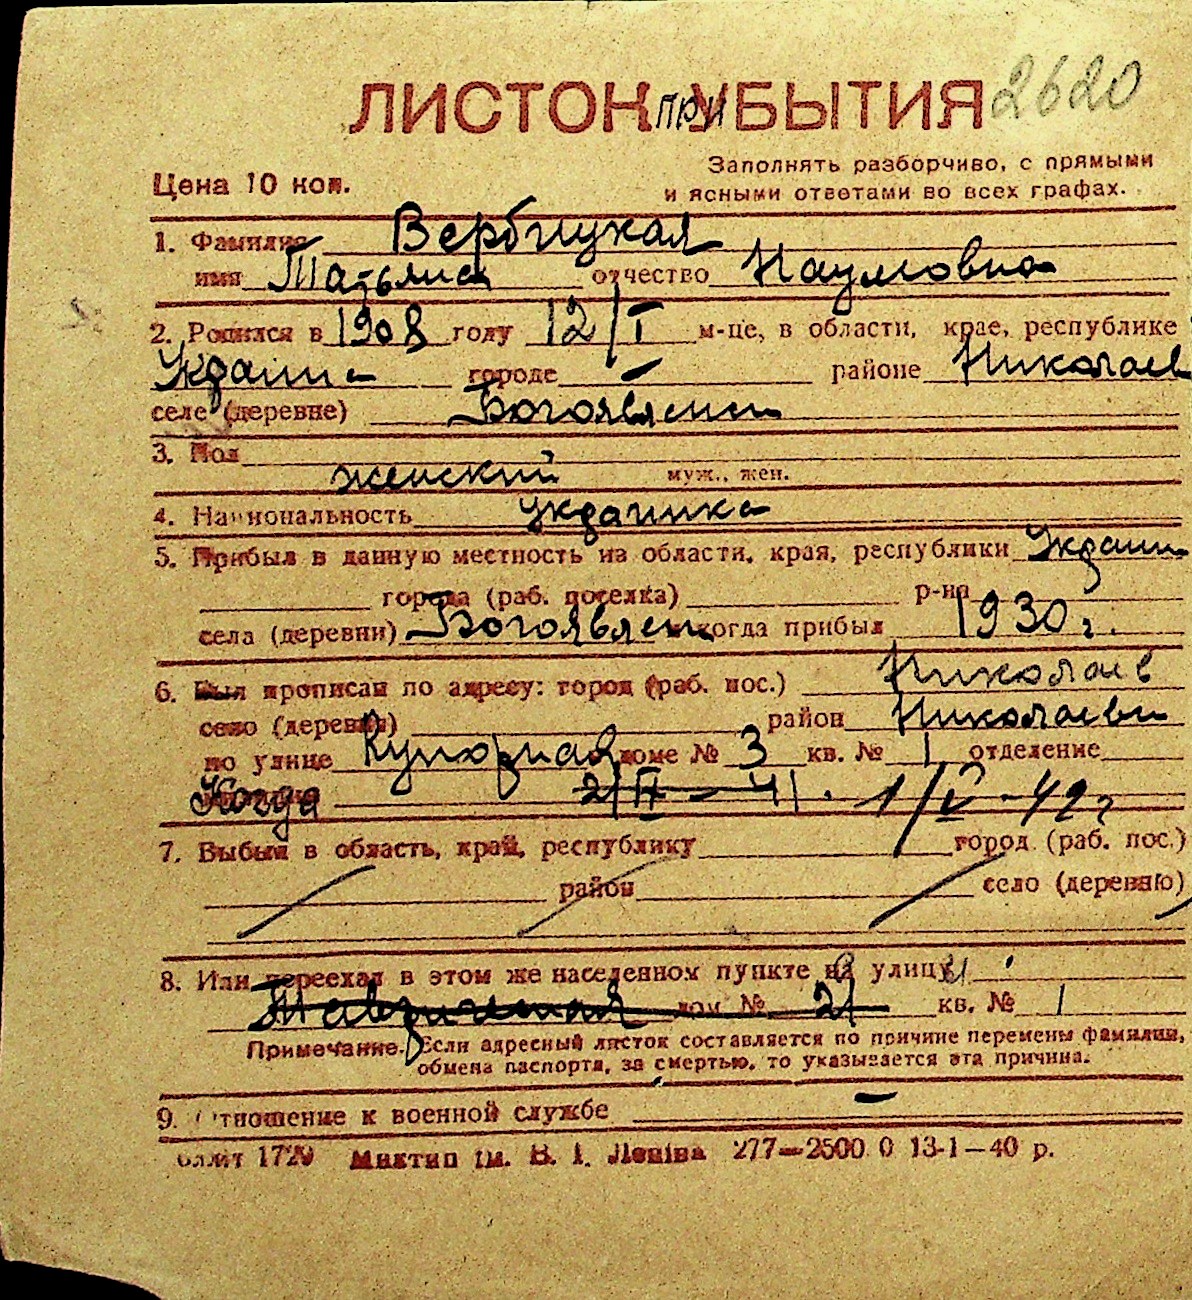 ЛИСТОК ПРИ УБЫТИЯ 2620
Заполнять разборчиво, с прямыми
Цена 10 коп.
и ясными ответами во всех графах.
1. Фамилия Вербицкая
имя Татьяна отчество Наумовна
2. Родился в 1908 году 12/I м-це, в области, крае, республике
Украина городе — районе Николаев
селе (деревне) Богоявленск
3. Пол женский
муж., жен.
4. Национальность украинка
5. Прибыл в данную местность из области, края, республики Украин
города (раб. поселка) р-на
села (деревни) Богоявленск когда прибыл 1930 г.
6. Был прописан по адресу: город (раб. пос.) Николаев
село (деревня) район Николаевск
по улице доме № 3 кв. № 1 отделение
Когда 2/II – 41. 1/V – 42 г
7. Выбыл в область, край, республику город (раб. пос.)
район село (деревню)
8. Или переехал в этом же населенном пункте на улицу
Таврическая дом № 21 кв. № 1
Примечание. Если адресный листок составляется по причине перемены фамилии,
обмена паспорта, за смертью, то указывается эта причина.
9. Отношение к военной службе —
1729 Миктип ім. В. І. Леніна 277—2500 0 13-1—40 р.